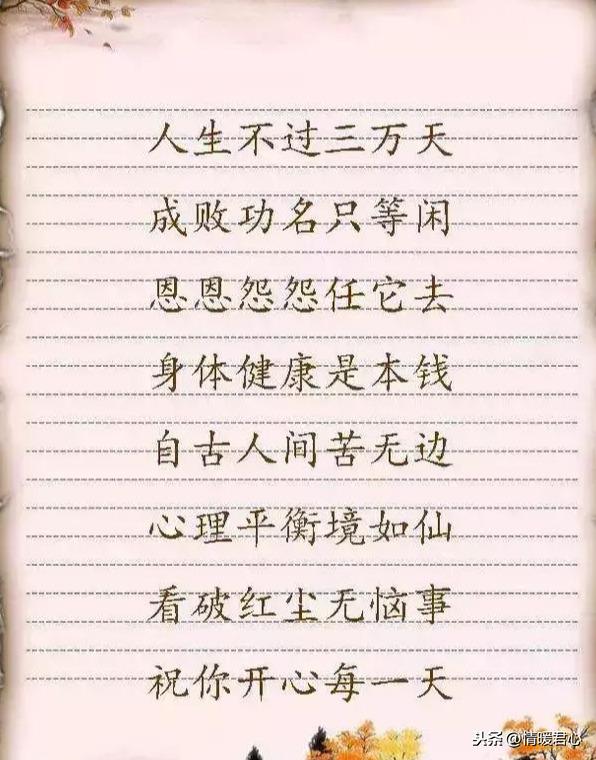 人生不过三万天
成败功名只等闲
恩恩怨怨任它去
身体健康是本钱
自古人间苦无边
心理平衡境如仙
看破红尘无恼事
祝你开心每一天
头条 @情暖君心